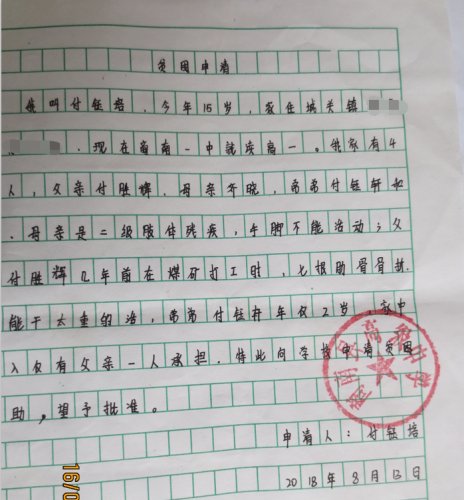 贫困申请
我叫付钰培，今年15岁，家住城关镇
，现在商南一中就读高一。我家有4
人，父亲付胜辉，母亲 晓，弟弟付钰轩和
，母亲是二级肢体残疾，手脚不能活动；父
付胜辉几年前在煤矿打工时，七根助骨骨折
能干太重的活，弟弟付钰轩年仅2岁，家中
入仅有父亲一人承担，特此向学校申请贫困
助，望予批准。
申请人：付钰培
2018年8月13日
16/0